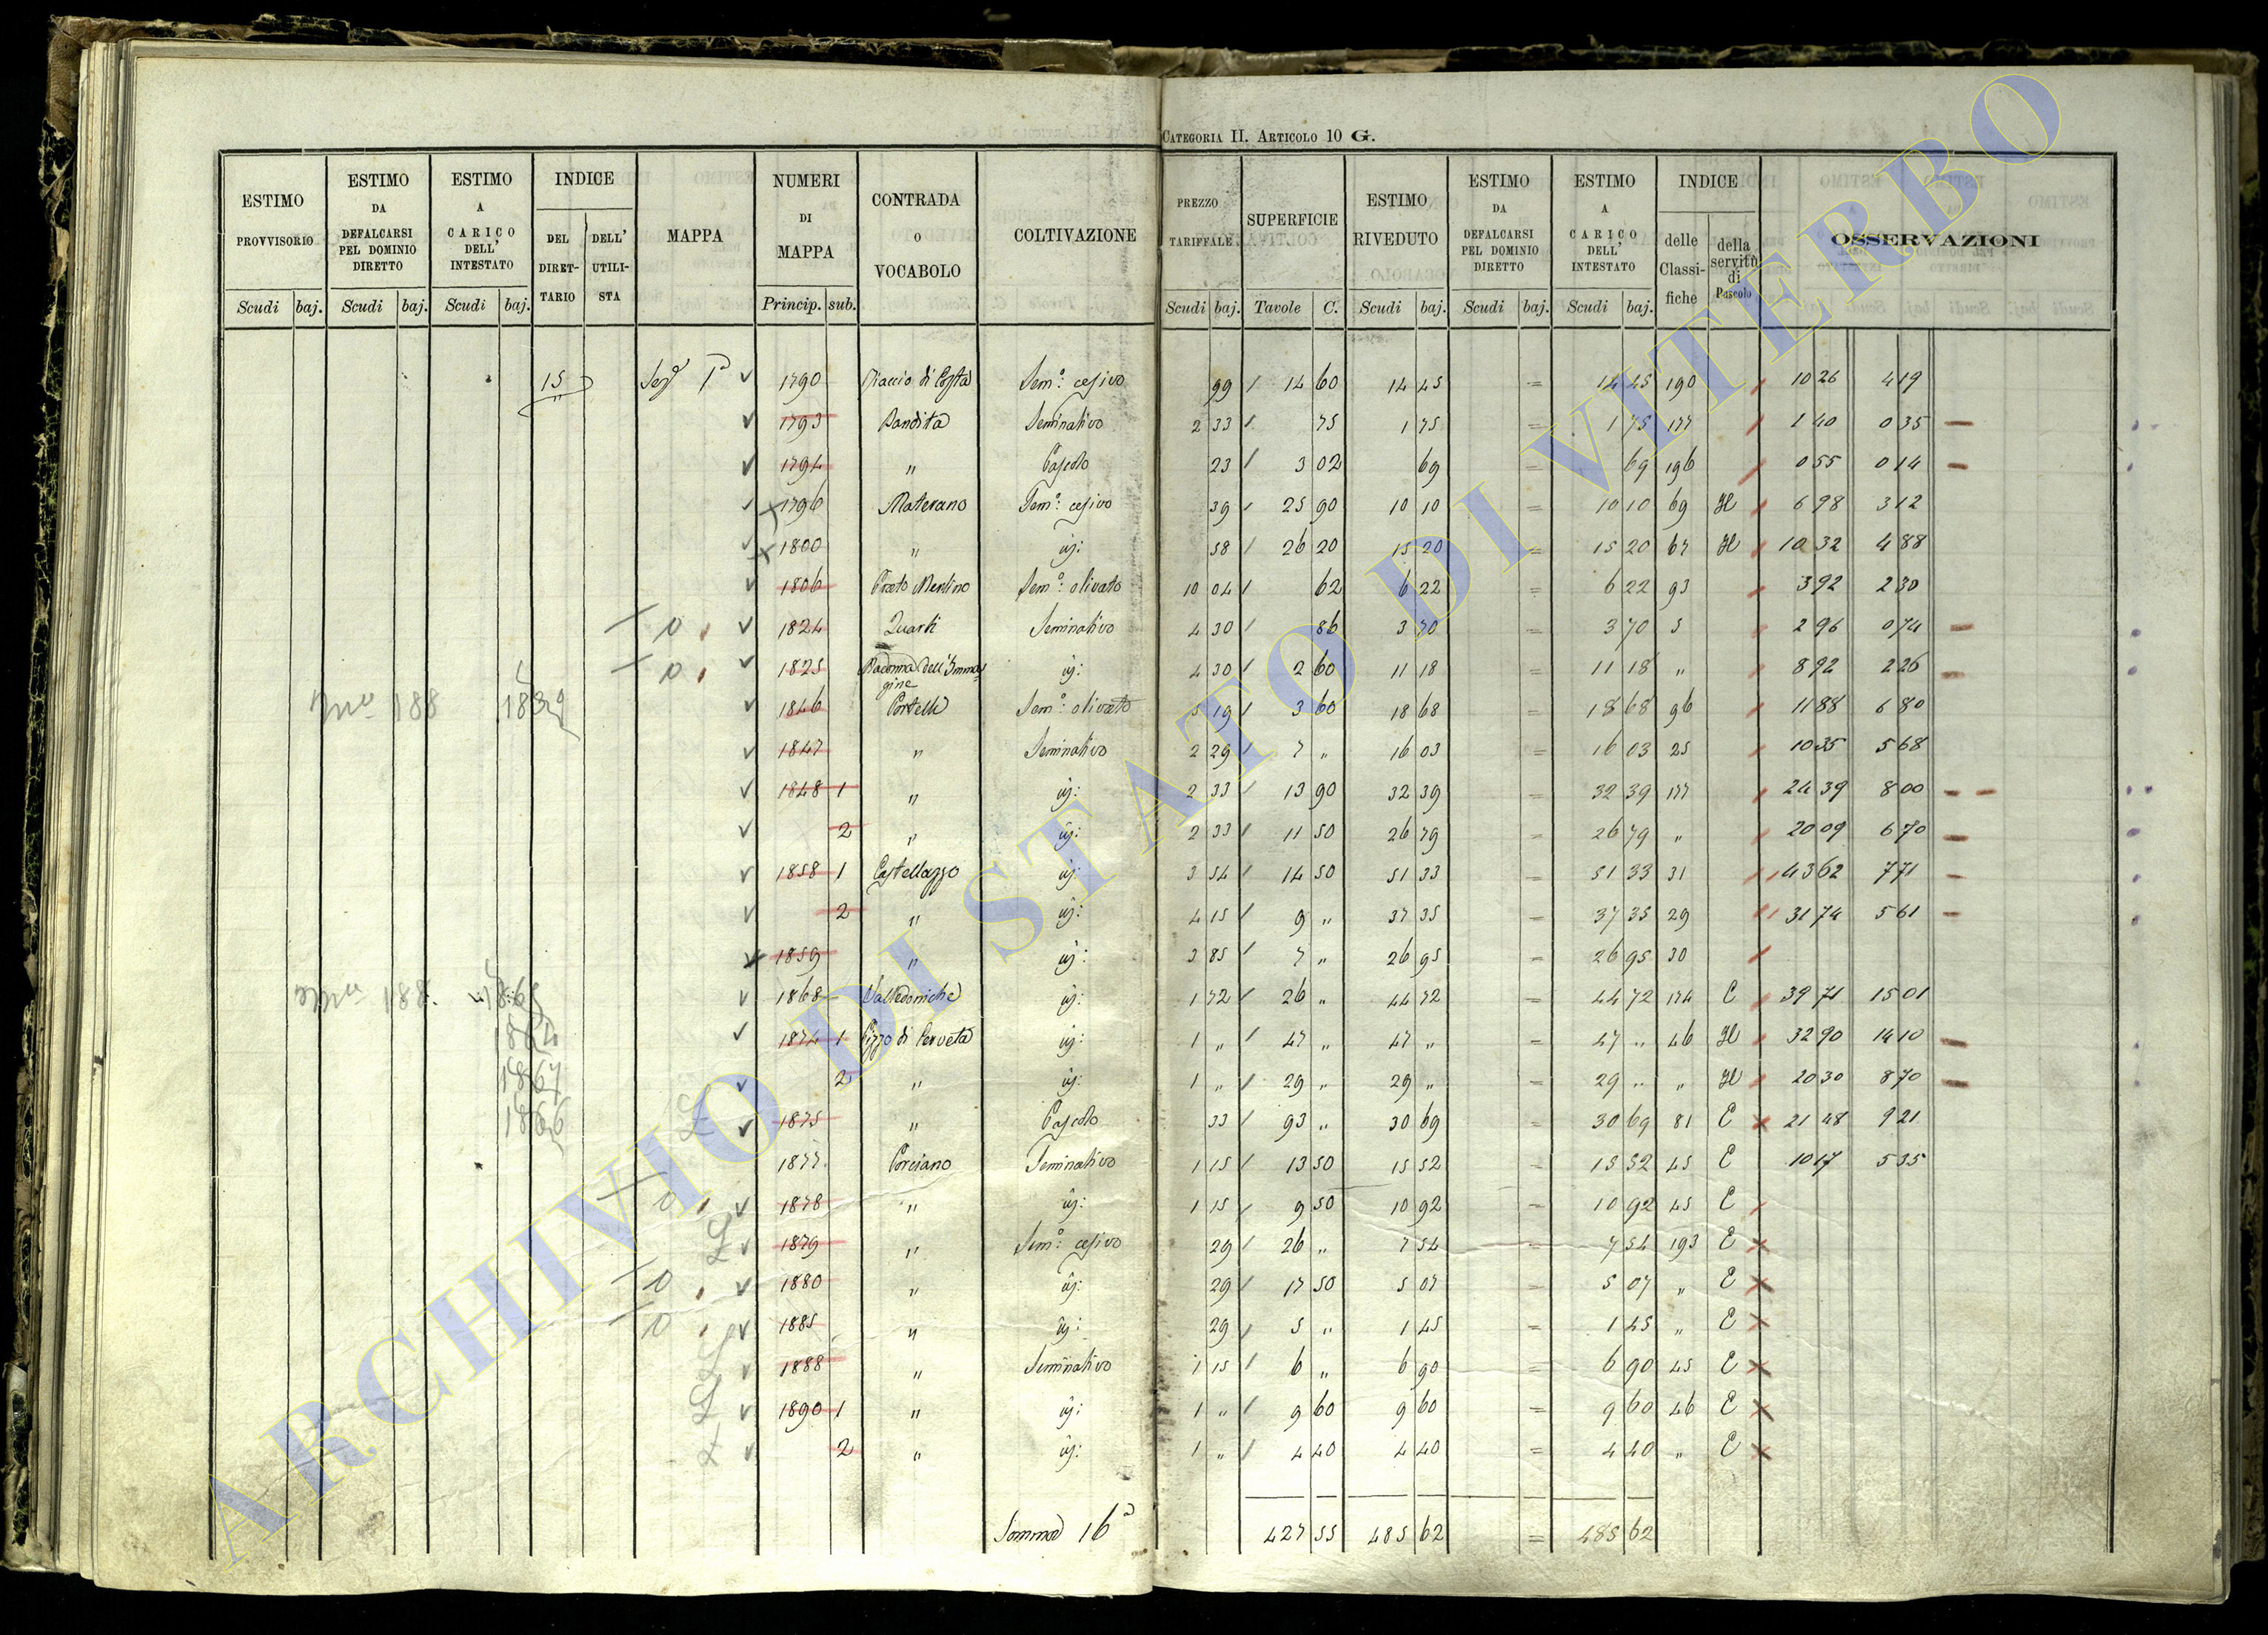 CATEGORIA II. ARTICOLO 10 G.
ESTIMO PROVVISORIO | ESTIMO DA DEFALCARSI PEL DOMINIO DIRETTO | ESTIMO A CARICO DELL' INTESTATO | INDICE DEL DIRETTARIO | DELL' UTILISTA | MAPPA | NUMERI DI MAPPA | CONTRADA O VOCABOLO | COLTIVAZIONE | PREZZO TARIFFALE | SUPERFICIE | ESTIMO RIVEDUTO | ESTIMO DA DEFALCARSI PEL DOMINIO DIRETTO | ESTIMO A CARICO DELL' INTESTATO | INDICE delle Classifiche | della servitù di Pascolo | OSSERVAZIONI
Scudi | baj. | Scudi | baj. | Scudi | baj. | Princip. | sub. | Scudi | baj. | Tavole | C. | Scudi | baj. | Scudi | baj. | Scudi | baj.
15 | 1790 | di Costa | Sem.o cesivo | 99 | 14 60 | 14 45 | = | 14 45 | 190 | 10 26 | 4 19
1793 | Bandita | Seminativo | 2 33 | 75 | 1 75 | = | 1 75 | 177 | 1 40 | 0 35
1794 | " | Pascolo | 23 | 3 02 | 69 | = | 69 | 196 | 0 55 | 0 14
1796 | Materano | Sem.o cesivo | 39 | 25 90 | 10 10 | = | 10 10 | 69 | H | 6 98 | 3 12
1800 | " | id: | 58 | 26 20 | 15 20 | = | 15 20 | 67 | H | 10 32 | 4 88
1806 | Prato Merlino | Sem.o olivato | 10 04 | 62 | 6 22 | = | 6 22 | 93 | 3 92 | 2 30
0 | 1824 | Quarti | Seminativo | 4 30 | 86 | 3 70 | = | 3 70 | 5 | 2 96 | 0 74
0 | 1825 | Madonna dell'Immagine | id: | 4 30 | 2 60 | 11 18 | = | 11 18 | " | 8 92 | 2 26
188 | 1839 | 1846 | Portelle | Sem.o olivato | 5 19 | 3 60 | 18 68 | = | 18 68 | 96 | 11 88 | 6 80
1847 | " | Seminativo | 2 29 | 7 " | 16 03 | = | 16 03 | 25 | 10 35 | 5 68
1848 | 1 | " | id: | 2 33 | 13 90 | 32 39 | = | 32 39 | 177 | 24 39 | 8 00
2 | " | id: | 2 33 | 11 50 | 26 79 | = | 26 79 | " | 20 09 | 6 70
1858 | 1 | Castellazzo | id: | 3 54 | 14 50 | 51 33 | = | 51 33 | 31 | 43 62 | 7 71
2 | " | id: | 4 15 | 9 " | 37 35 | = | 37 35 | 29 | 31 74 | 5 61
1859 | " | id: | 3 85 | 7 " | 26 95 | = | 26 95 | 30
188. | 1868 | Valledoniche | id: | 1 72 | 26 " | 44 72 | = | 44 72 | 174 | E | 39 71 | 15 01
1874 | 1 | Pizzo di Cerveta | id: | 1 " | 47 " | 47 " | = | 47 " | 46 | H | 32 90 | 14 10
1867 | 2 | " | id: | 1 " | 29 " | 29 " | = | 29 " | " | H | 20 30 | 8 70
1866 | 1875 | " | Pascolo | 33 | 93 " | 30 69 | = | 30 69 | 81 | E | 21 48 | 9 21
1877 | Porciano | Seminativo | 1 15 | 13 50 | 15 52 | = | 15 52 | 45 | E | 10 17 | 5 35
0 | 1878 | " | id: | 1 15 | 9 50 | 10 92 | = | 10 92 | 45 | E
1879 | " | Sem.o cesivo | 29 | 26 " | 7 54 | = | 7 54 | 193 | E
0 | 1880 | " | id: | 29 | 17 50 | 5 07 | = | 5 07 | " | E
0 | 1885 | " | id: | 29 | 5 " | 1 45 | = | 1 45 | " | E
1888 | " | Seminativo | 1 15 | 6 " | 6 90 | = | 6 90 | 45 | E
1890 | 1 | " | id: | 1 " | 9 60 | 9 60 | = | 9 60 | 46 | E
2 | " | id: | 1 " | 4 40 | 4 40 | = | 4 40 | " | E
Somma 16a | 427 55 | 485 62 | = | 485 62
ARCHIVIO DI STATO DI VITERBO